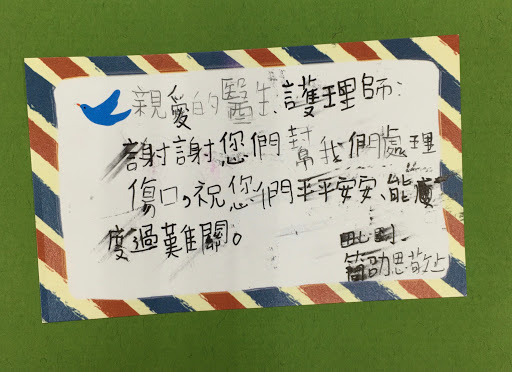 親愛的醫生、護理師:
謝謝您們幫我們處理
傷口,祝您們平平安安、能
度過難關。
簡邵思敬上